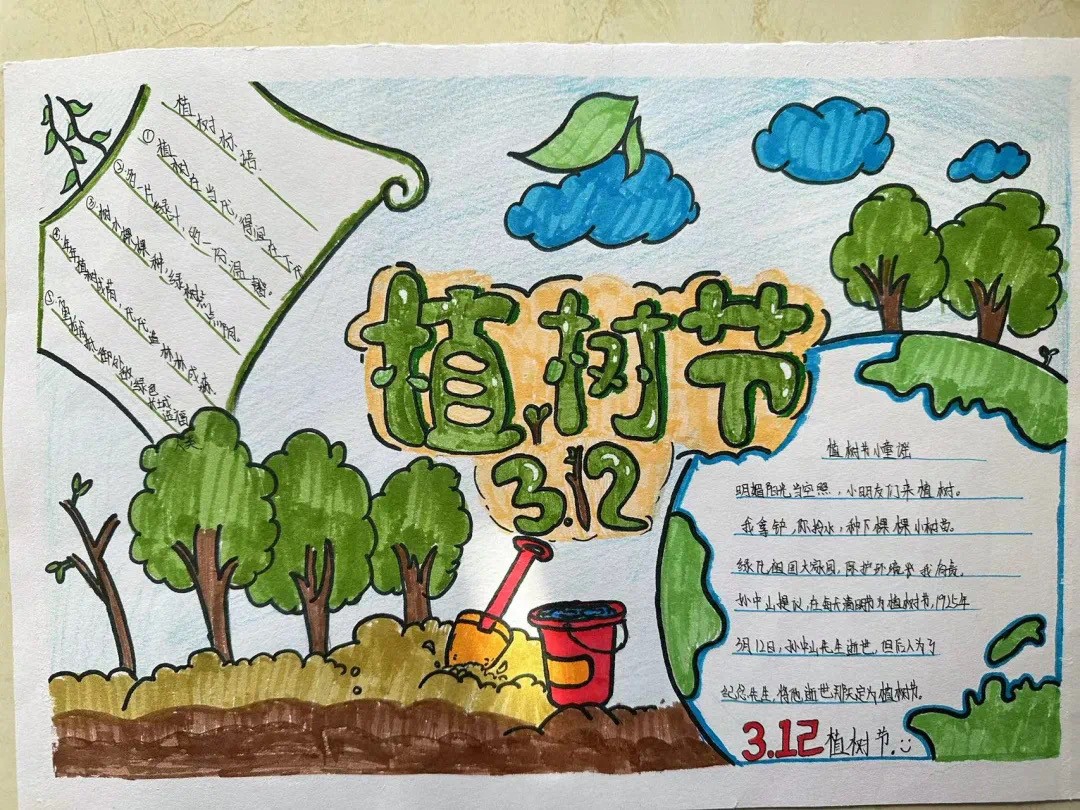 植树标语
①植树在当代,得宜在下代
②多一片绿叶,多一份温馨。
③树木棵棵种,绿树点点啊。
④年年植树成荫,代代造林林成森
⑤绿色长城造福
植树节
3.12
植树节小童谣
明媚阳光当空照,小朋友们来植树。
我拿铲,你拎水,种下棵棵小树苗。
绿化祖国大家园,保护环境
孙中山提议,在每年清明节为植树节,1925年
3月12日,孙中山先生逝世,但后人为了
纪念先生,将他逝世那天定为植树节。
3.12植树节.